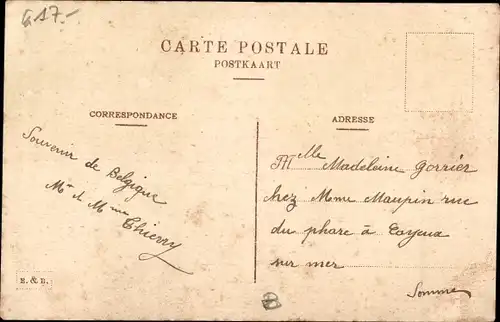 G17.-
CARTE POSTALE
POSTKAART
CORRESPONDANCE
ADRESSE
Souvenir de Belgique
Mr & Mme Thierry
Mlle Madeleine Gorrièr
chez Mme Maupin rue
du phare à Cayeux
sur mer
Somme
E. & B.